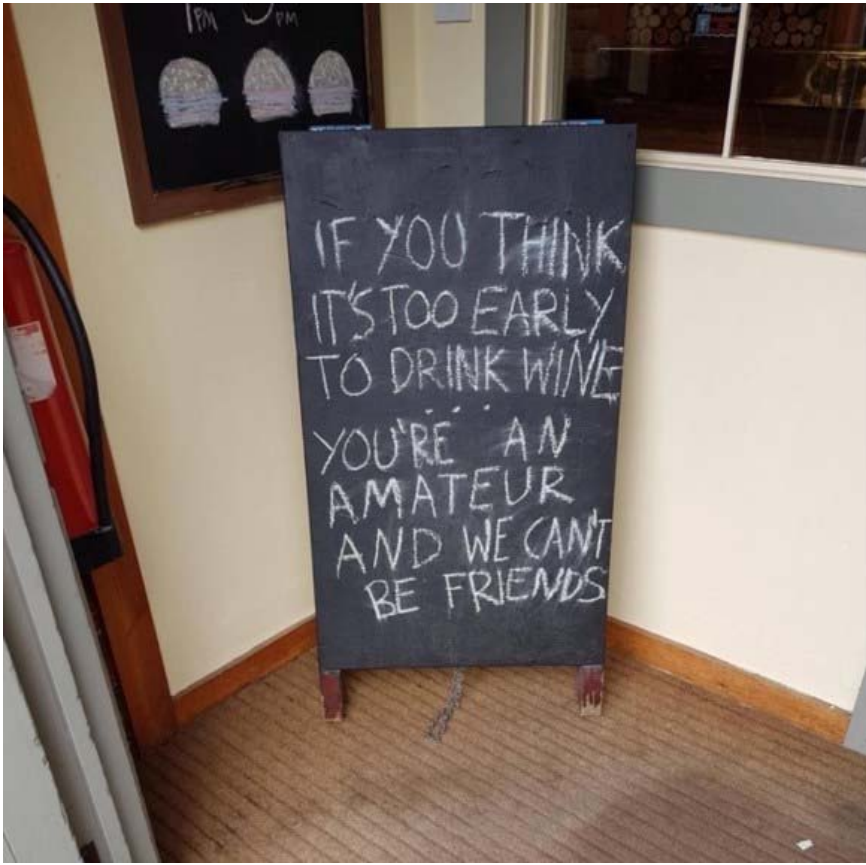 1PM 3PM
IF YOU THINK
IT'S TOO EARLY
TO DRINK WINE
...
YOU'RE AN
AMATEUR
AND WE CAN'T
BE FRIENDS